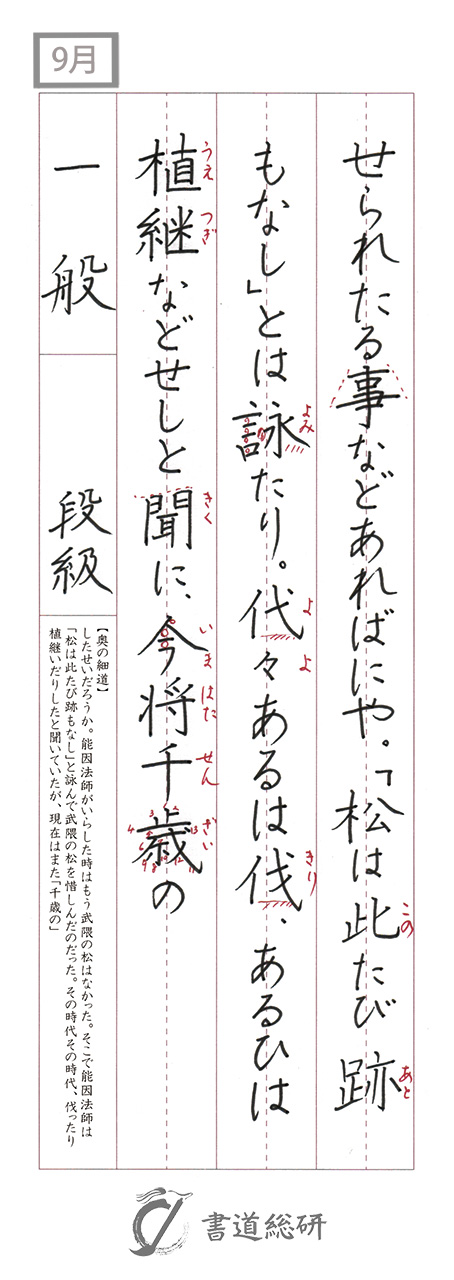 9月
せられたる事などあればにや。「松は此たび跡
もなし」とは詠たり。代々あるは伐、あるひは
植継などせしと聞に、今将千歳の
この
あと
よみ
よ
よ
きり
うえ
つぎ
きく
いま
はた
せん
ざい
一般
段級
【奥の細道】
したせいだろうか。能因法師がいらした時はもう武隈の松はなかった。そこで能因法師は
「松は此たび跡もなし」と詠んで武隈の松を惜しんだのだった。その時代その時代、伐ったり
植継いだりしたと聞いていたが、現在はまた「千歳の」
書道総研